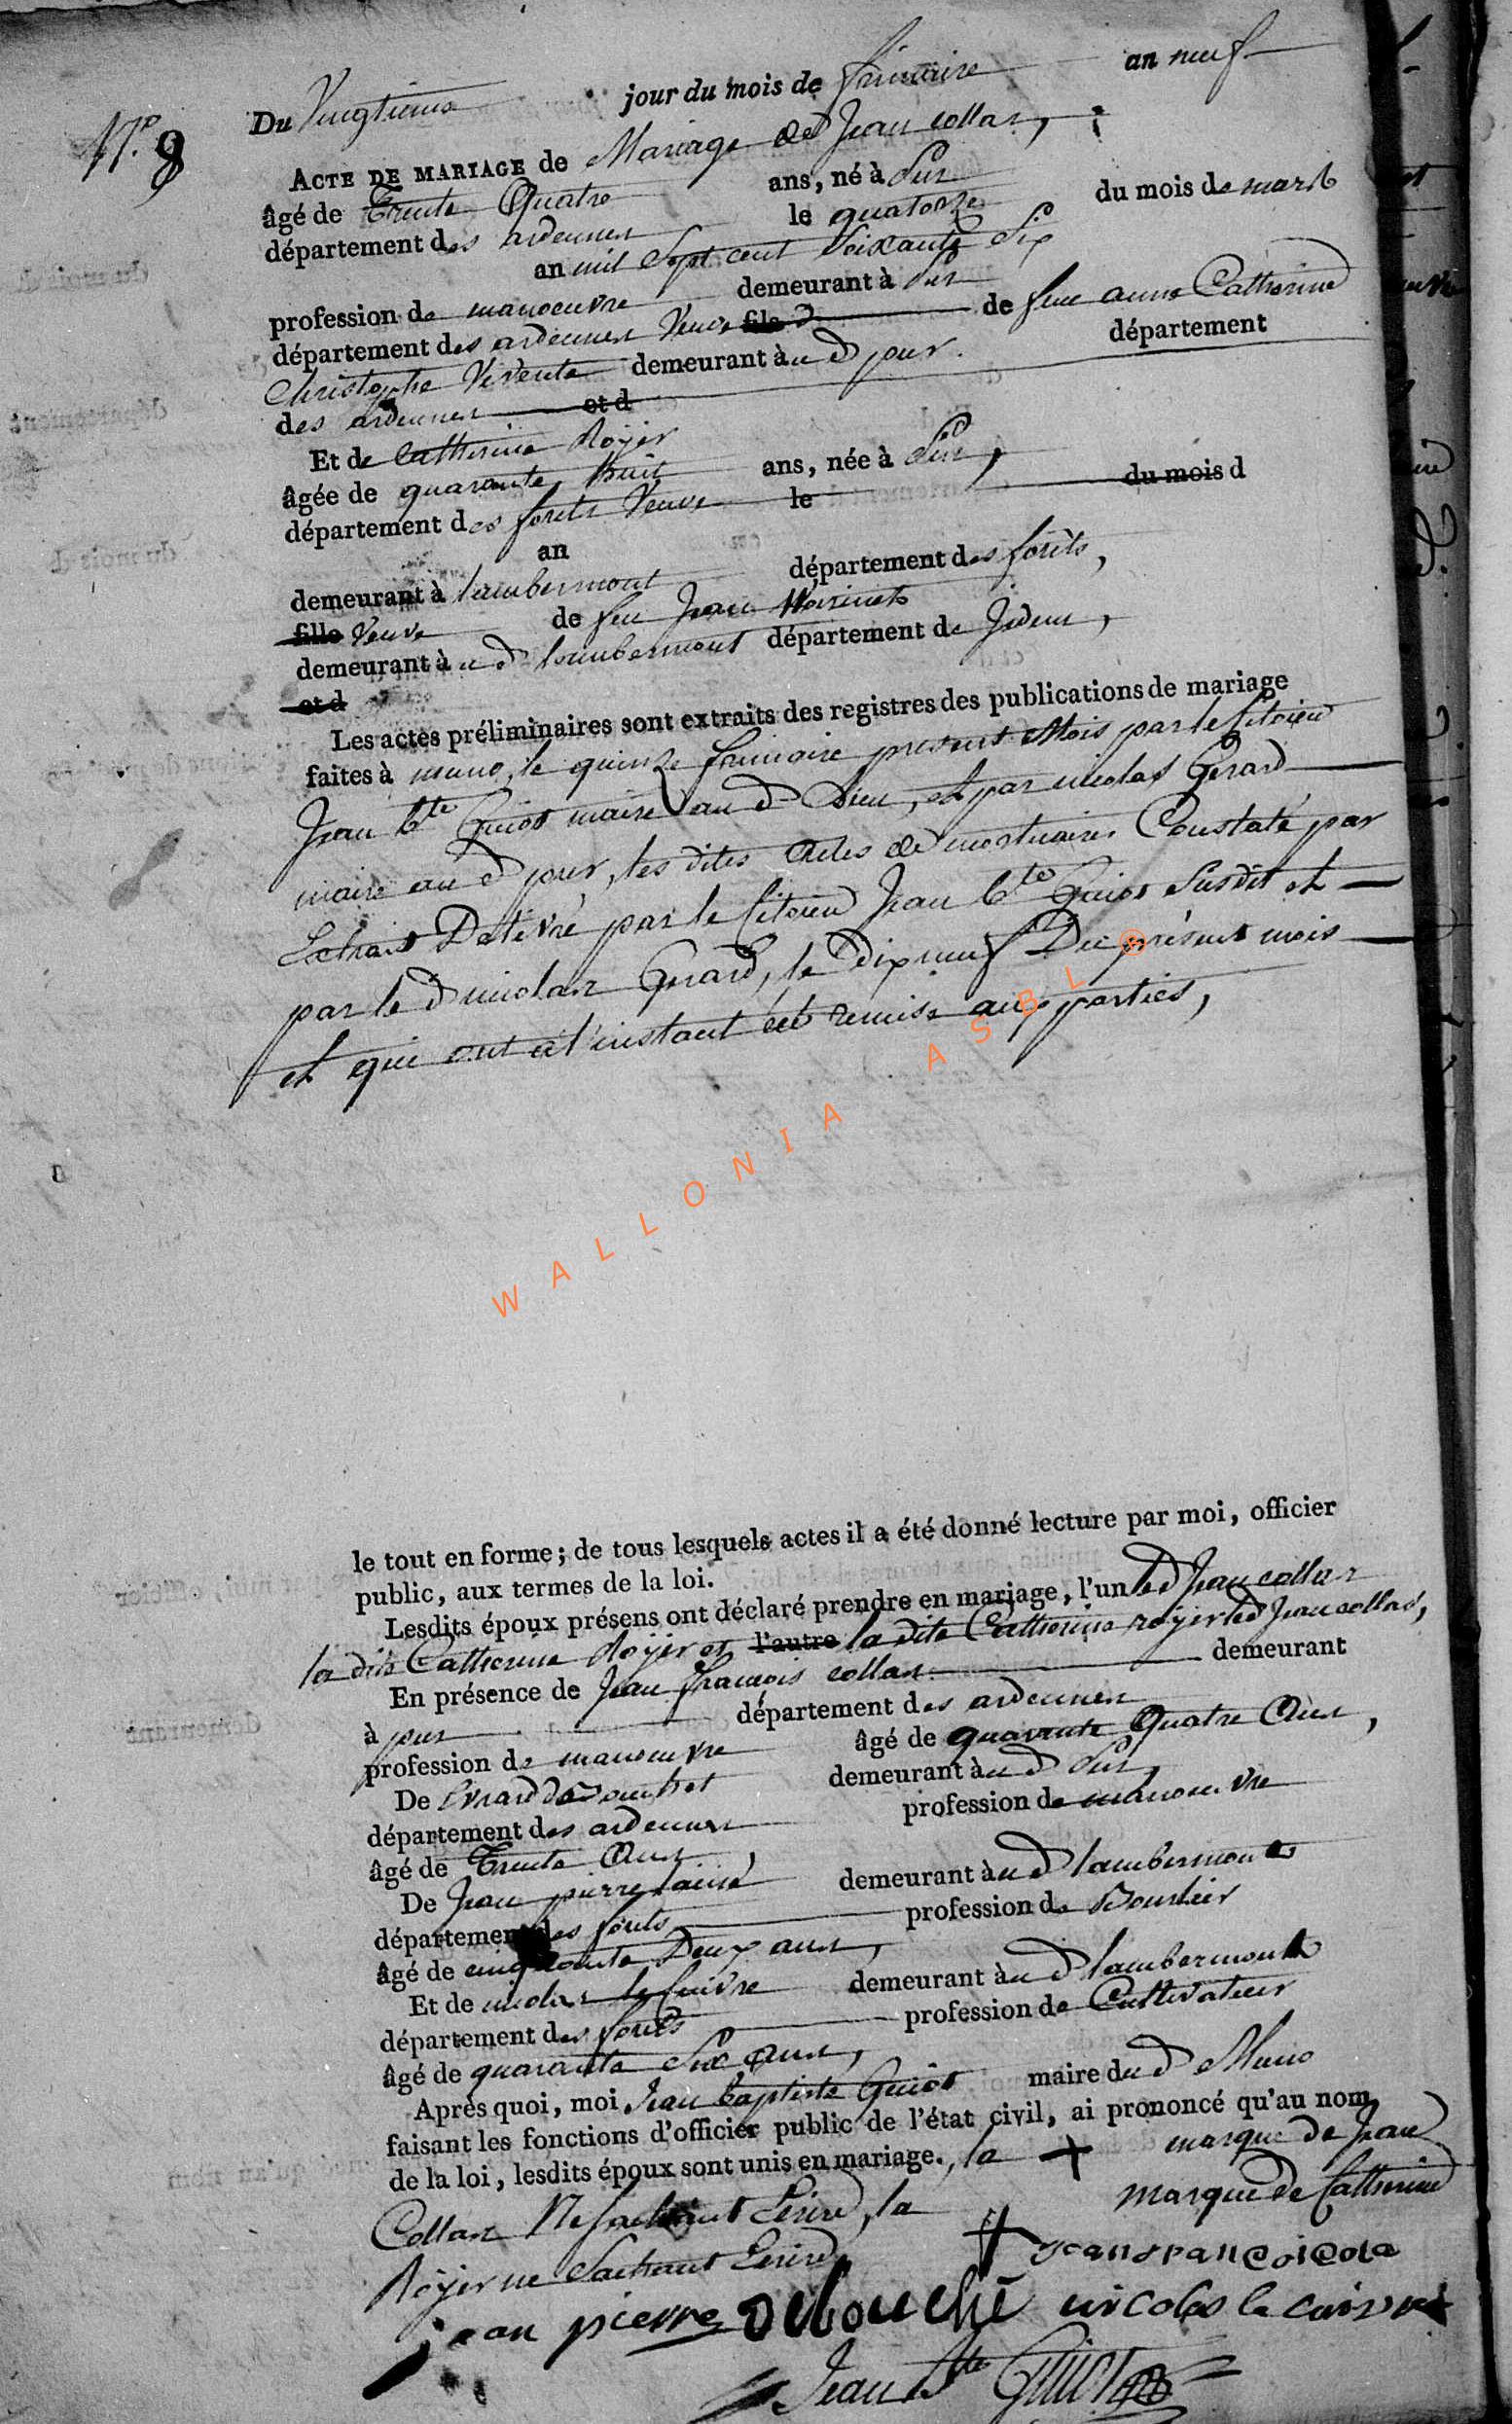 N.o 9
Du Vingtieme jour du mois de frimaire an neuf
ACTE DE MARIAGE de Mariage de Jean collas,
âgé de Trente Quatre ans, né à Sur
département des ardennes le quatorze du mois de mars
an mil Sept cent Soixante Six
profession de manoeuvre demeurant à
département des ardennes Veuf fils d de feue anne Catherine
Christophe demeurant àu d pur. département
des ardennes et d
Et de Catherine Royer
âgée de quarante huit ans, née à
département des forêts Veuve le du mois d
an
demeurant à lambermont département des forêts,
fille Veuve de feu Jean
demeurant àu d lambermont département de Idem,
et d
Les actes préliminaires sont extraits des registres des publications de mariage
faites à muno, le quinze frimaire present Mois par le Citoien
Jean bte Guiot maire au d Lieu, et par nicolas Gerard
maire au d pur, les dites Actes de mortuaires Constaté par
Extrait Delivré par le Citoien Jean bte Guiot Susdit et
par le d nicolas Gerard, le Dix neuf Du présent mois
et qui ont à l'instant été remise aux parties,
le tout en forme; de tous lesquels actes il a été donné lecture par moi, officier
public, aux termes de la loi.
Lesdits époux présens ont déclaré prendre en mariage, l'un led Jean collas
la dite Catherine Royer et l'autre la dite Catherine royer led Jean collas,
En présence de Jean françois collas demeurant
à pur département des ardennes
profession de manoeuvre âgé de quarante Quatre Ans,
De demeurant àu d
département des ardennes profession de manoeuvre
âgé de Trente Ans,
De Jean pierre demeurant àu d lambermont
département des forêts profession de
âgé de cinquante Deux ans,
Et de nicolas demeurant àu d lambermont
département des forêts profession de Cultivateur
âgé de quarante Six Ans,
Après quoi, moi Jean baptiste Guiot maire du d Muno
faisant les fonctions d'officier public de l'état civil, ai prononcé qu'au nom
de la loi, lesdits époux sont unis en mariage., la + marque de Jean
Collas Ne Sachant Ecrire, la marque de Catherine
Royer ne Sachant Ecrire,
jean pierre debouché nicolas
Jean Bte Guiot
WALLONIA ASBL ®